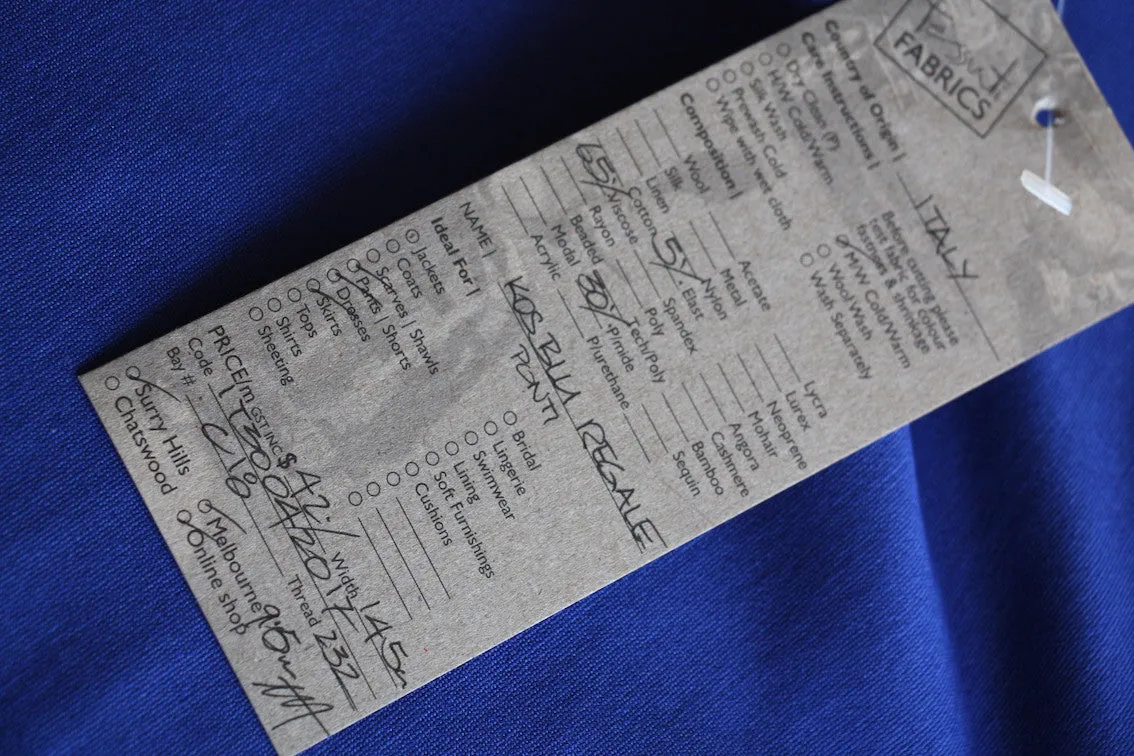 FABRICS
Country of Origin | ITALY
Care Instructions |
Dry Clean (P)
H/W Cold/Warm
Silk Wash
Prewash Cold
Wipe with wet cloth
Before cutting please
test fabric for colour
fastness & shrinkage
M/W Cold/Warm
Wool Wash
Wash Separately
Composition |
Wool
Silk
Linen
Cotton
65% Viscose
Rayon
Beaded
Modal
Acrylic
Acetate
Metal
Nylon
5% Elast
Spandex
Poly
Tech/Poly
30% P/mide
P/urethane
Lycra
Lurex
Neoprene
Mohair
Angora
Cashmere
Bamboo
Sequin
NAME | KOS BLU REGALE
PONTI
Ideal For |
Jackets
Coats
Scarves | Shawls
Pants | Shorts
Dresses
Skirts
Tops
Shirts
Sheeting
Bridal
Lingerie
Swimwear
Lining
Soft Furnishings
Cushions
PRICE/m GST INC $ 42./ Width 145
Code 1T3004/2017 Thread 232
Bay #. C18
Surry Hills
Chatswood
Melbourne
Online shop